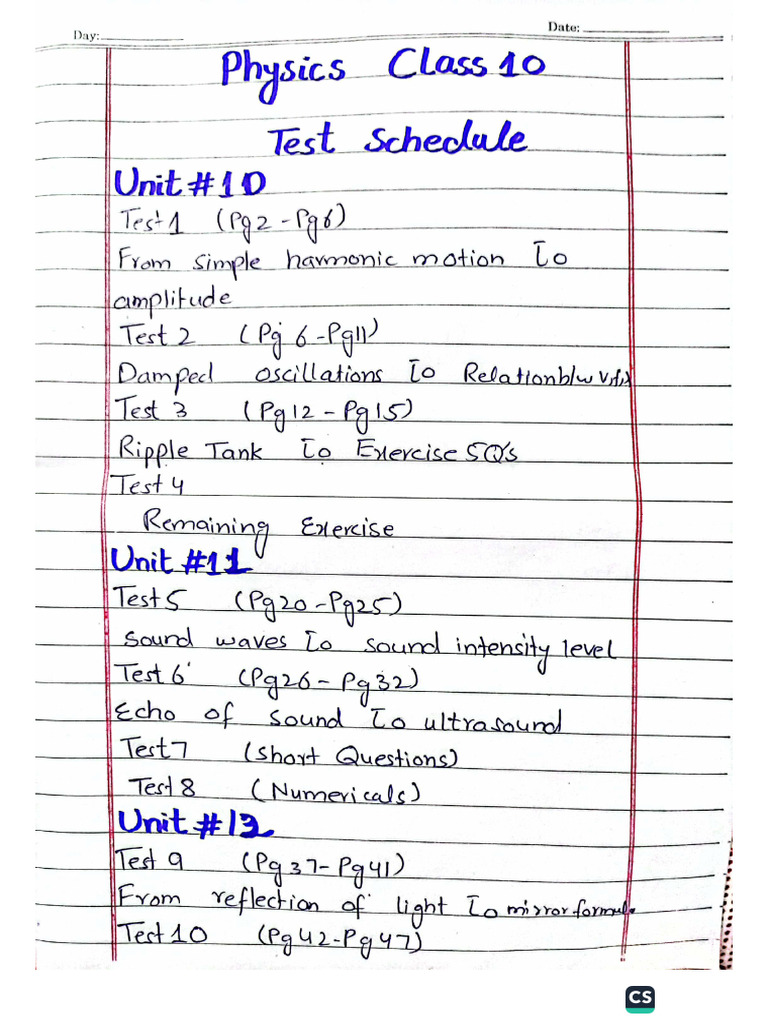 Day:
Date:
Physics Class 10
Test Schedule
Unit #10
Test 1 (Pg2 - Pg6)
From simple harmonic motion To
amplitude
Test 2 (Pg 6 - Pg11)
Damped oscillations To Relation b/w v,f,λ
Test 3 (Pg12 - Pg15)
Ripple Tank To Exercise SQ's
Test 4
Remaining Exercise
Unit #11
Test 5 (Pg20 - Pg25)
Sound waves To sound intensity level
Test 6 (Pg26 - Pg32)
Echo of sound To ultrasound
Test 7 (Short Questions)
Test 8 (Numericals)
Unit #12
Test 9 (Pg37 - Pg41)
From reflection of light To mirror formula
Test 10 (Pg42 - Pg47)
CS